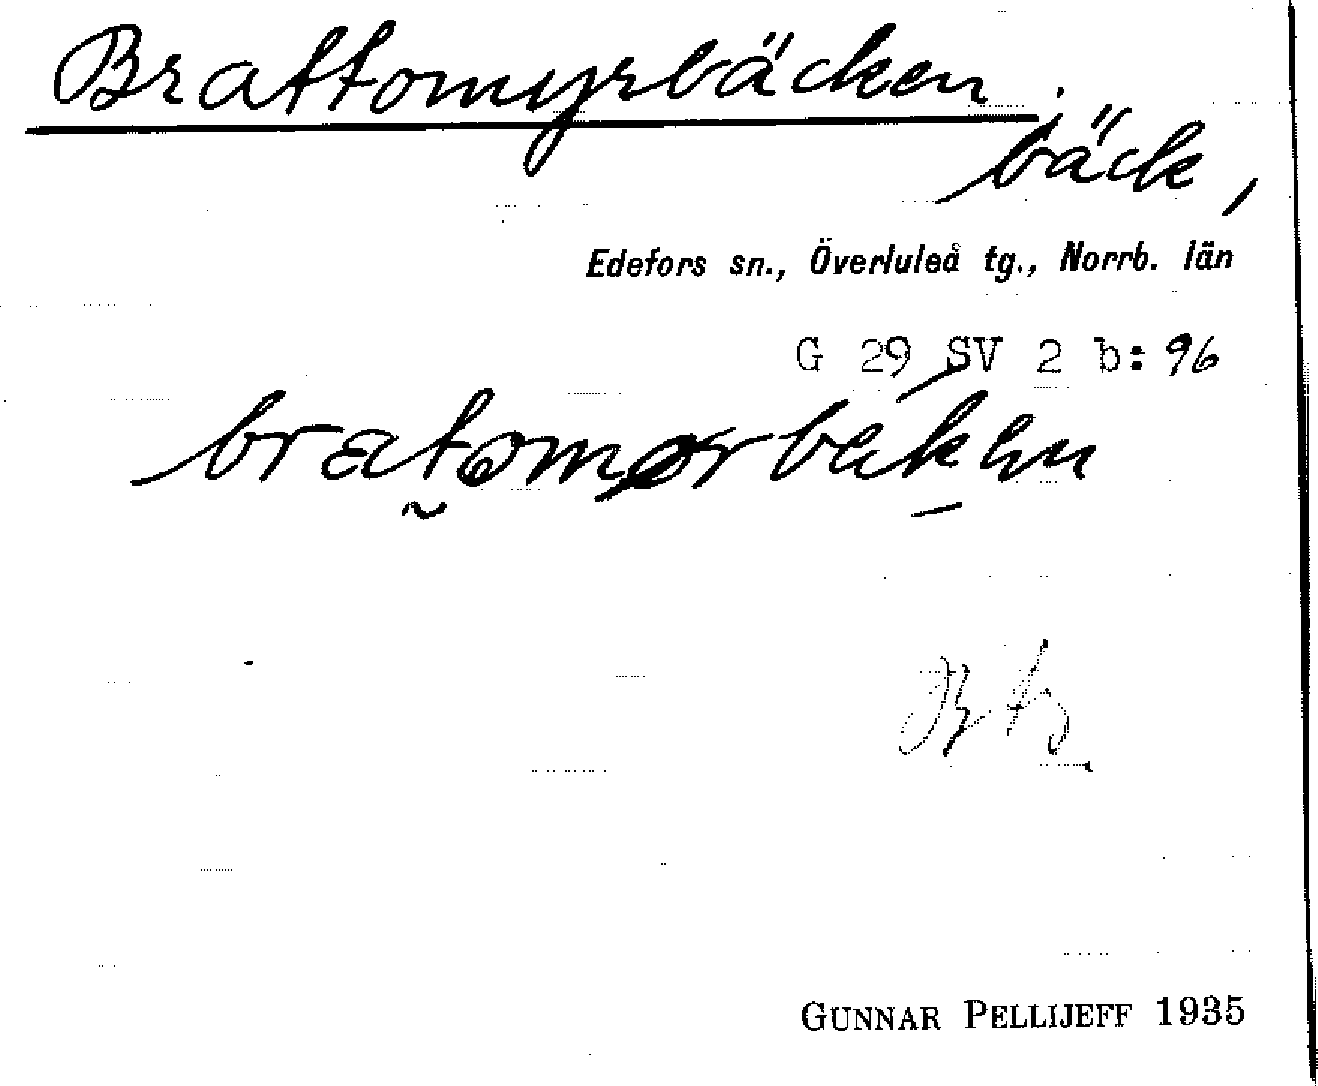 Brattomyrbäcken.
bäck,
Edefors sn., Överluleå tg., Norrb. län
G 29 SV 2 b: 96
GUNNAR PELLIJEFF 1935